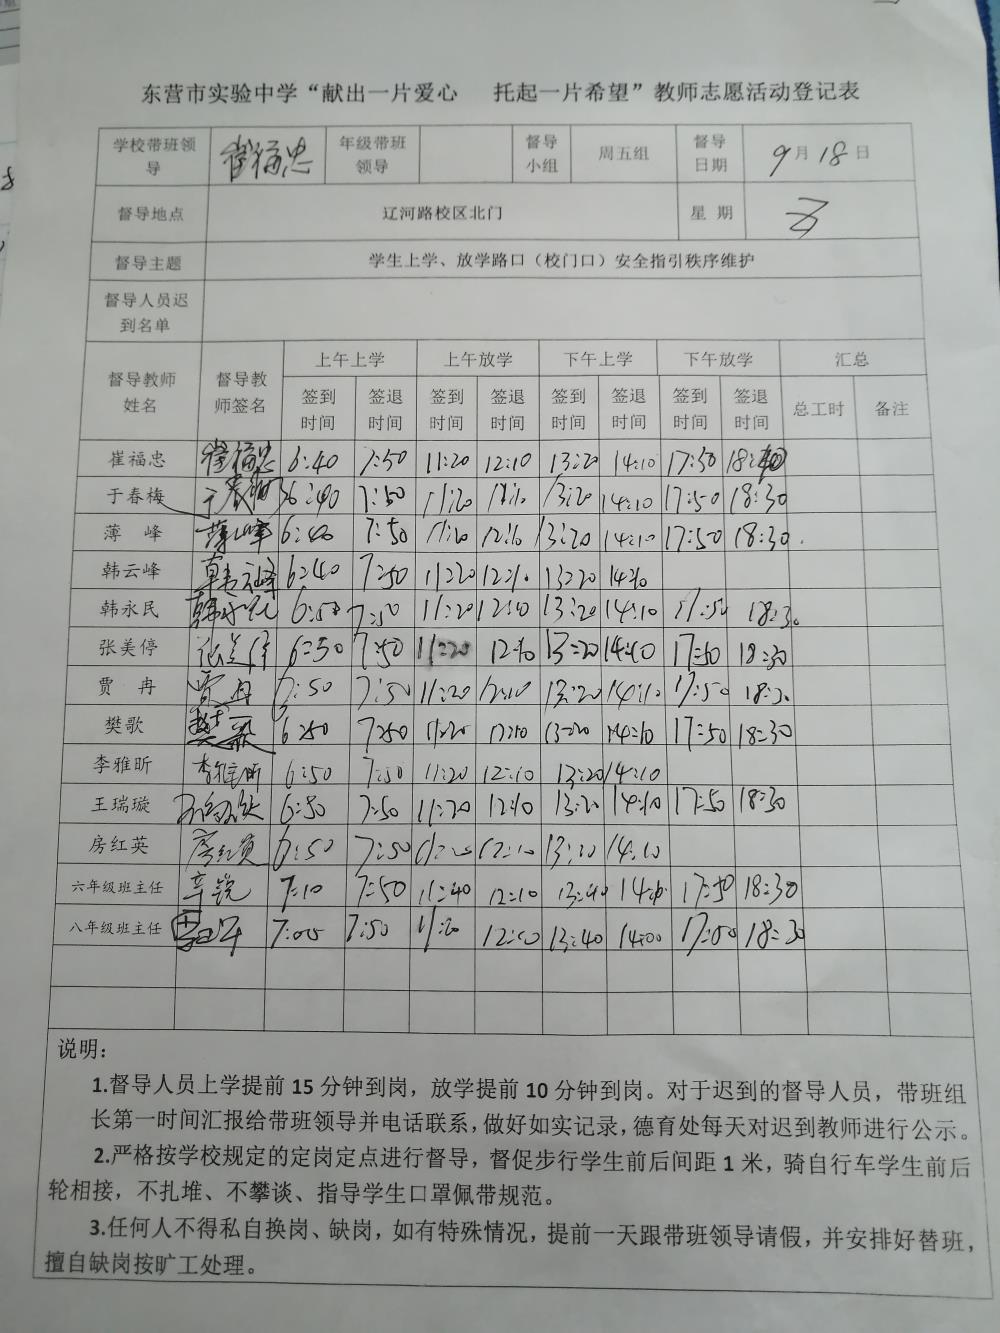 东营市实验中学“献出一片爱心 托起一片希望”教师志愿活动登记表
学校带班领导 崔福忠 年级带班领导 督导小组 周五组 督导日期 9月18日
督导地点 辽河路校区北门 星 期 五
督导主题 学生上学、放学路口（校门口）安全指引秩序维护
督导人员迟到名单
督导教师姓名 督导教师签名 上午上学 上午放学 下午上学 下午放学 汇总
签到时间 签退时间 签到时间 签退时间 签到时间 签退时间 签到时间 签退时间 总工时 备注
崔福忠 崔福忠 6:40 7:50 11:20 12:10 13:20 14:10 17:50 18:40
于春梅 于春梅 6:40 7:50 11:20 12:10 13:20 14:10 17:50 18:30
薄 峰 薄峰 6:40 7:50 11:20 12:10 13:20 14:10 17:50 18:30
韩云峰 韩云峰 6:40 7:50 11:20 12:10 13:20 14:10
韩永民 韩永民 6:50 7:50 11:20 12:10 13:20 14:10 17:50 18:30
张美停 张美停 6:50 7:50 11:20 12:10 13:20 14:10 17:50 18:30
贾 冉 贾冉 6:50 7:50 11:20 12:10 13:20 14:10 17:50 18:30
樊歌 樊歌 6:50 7:50 11:20 12:10 13:20 14:10 17:50 18:30
李雅昕 李雅昕 6:50 7:50 11:20 12:10 13:20 14:10
王瑞璇 6:50 7:50 11:20 12:10 13:20 14:10 17:50 18:30
房红英 房红英 6:50 7:50 11:20 12:10 13:20 14:10
六年级班主任 辛锐 7:10 7:50 11:40 12:10 13:40 17:50 18:30
八年级班主任 7:00 7:50 13:40 14:00 17:50 18:30
说明：
1.督导人员上学提前 15 分钟到岗，放学提前 10 分钟到岗。对于迟到的督导人员，带班组
长第一时间汇报给带班领导并电话联系，做好如实记录，德育处每天对迟到教师进行公示。
2.严格按学校规定的定岗定点进行督导，督促步行学生前后间距 1 米，骑自行车学生前后
轮相接，不扎堆、不攀谈、指导学生口罩佩带规范。
3.任何人不得私自换岗、缺岗，如有特殊情况，提前一天跟带班领导请假，并安排好替班，
擅自缺岗按旷工处理。